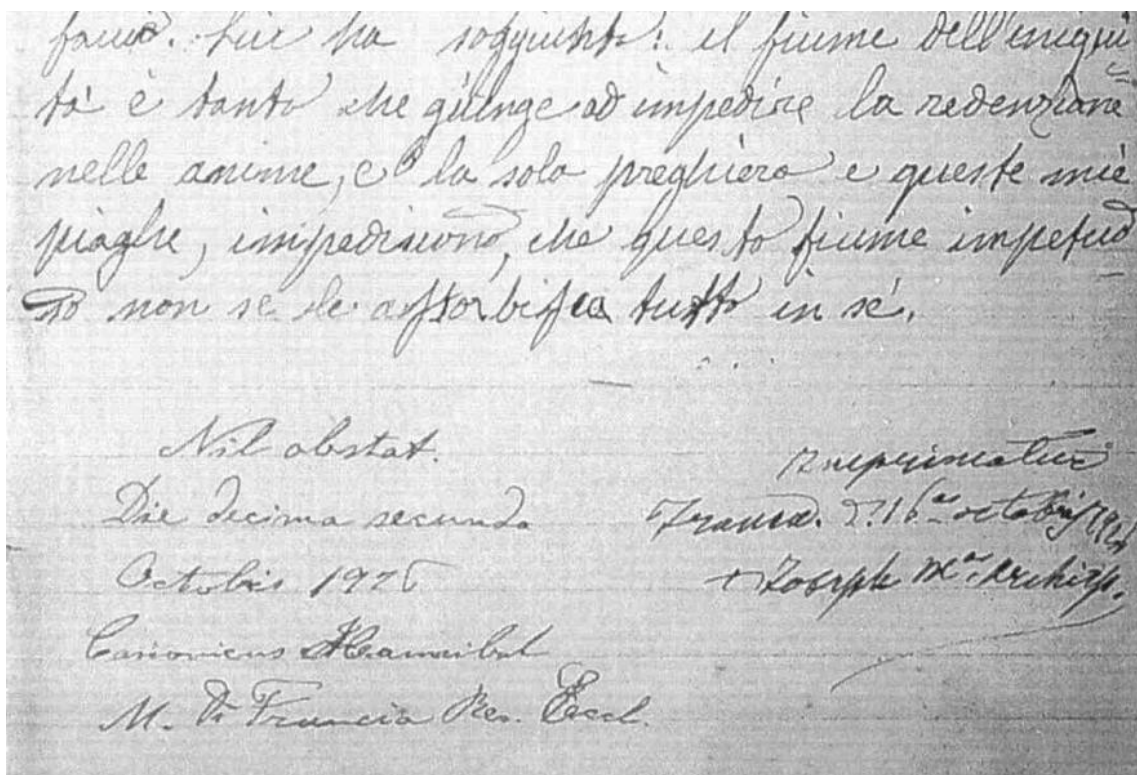 Lui ha soggiunto: il fiume dell'iniqui
tà è tanto che giunge ad impedire la redenzione
nelle anime, e la sola preghiera e queste mie
piaghe, impediscono, che questo fiume impetuo
so non se le assorbisca tutto in sé.
Nil obstat.
Die decima secunda
Octobris 1926
Canonicus Hannibal
M. Di Francia Rev. Eccl.
Imprimatur
Octobris 1926
+ Joseph M. Archiep.